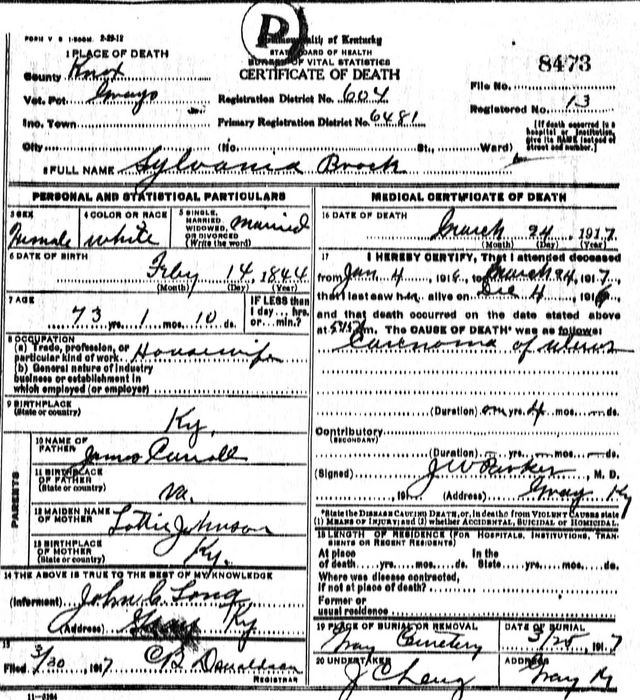 FORM V S 1-500M. 2-29-12
Commonwealth of Kentucky
STATE BOARD OF HEALTH
BUREAU OF VITAL STATISTICS
CERTIFICATE OF DEATH
8473
1 PLACE OF DEATH
County Knox
Vot. Pct. Grays
Inc. Town
City
Registration District No. 604
Primary Registration District No. 6481
(No. St., Ward)
File No.
Registered No. 13
[If death occurred in a hospital or institution, give its NAME instead of street and number.]
2 FULL NAME Sylvania Brock
PERSONAL AND STATISTICAL PARTICULARS
3 SEX
Female
4 COLOR OR RACE
white
5 SINGLE, MARRIED, WIDOWED, OR DIVORCED
(Write the word)
married
6 DATE OF BIRTH
Feby 14, 1844
(Month) (Day) (Year)
7 AGE
73 yrs. 1 mos. 10 ds.
IF LESS than
1 day... hrs.
or... min.?
8 OCCUPATION
(a) Trade, profession, or
particular kind of work Housewife
(b) General nature of industry
business or establishment in
which employed (or employer)
9 BIRTHPLACE
(State or country)
Ky.
PARENTS
10 NAME OF
FATHER
James Carroll
11 BIRTHPLACE
OF FATHER
(State or country)
va.
12 MAIDEN NAME
OF MOTHER
Lottie Johnson
13 BIRTHPLACE
OF MOTHER
(State or country)
Ky.
14 THE ABOVE IS TRUE TO THE BEST OF MY KNOWLEDGE
(Informant) John C. Long
(Address) Gray Ky
15
Filed 3/30, 1917 C B Donaldson
REGISTRAR
11-3184
MEDICAL CERTIFICATE OF DEATH
16 DATE OF DEATH
March 24, 1917
(Month) (Day) (Year)
17 I HEREBY CERTIFY, That I attended deceased
from Jan 4, 1916, to March 24, 1917,
that I last saw her alive on Dec 4, 1916
and that death occurred on the date stated above
at m. The CAUSE OF DEATH* was as follows:
Carcnoma of uterus
(Duration) yrs. 4 mos. ds.
Contributory
(SECONDARY)
(Duration) yrs. mos. ds.
(Signed) J W Parker, M. D.
, 191 (Address) Gray Ky
*State the DISEASE CAUSING DEATH, or, in deaths from VIOLENT CAUSES state
(1) MEANS OF INJURY; and (2) whether ACCIDENTAL, SUICIDAL or HOMICIDAL.
18 LENGTH OF RESIDENCE (FOR HOSPITALS, INSTITUTIONS, TRANSIENTS OR RECENT RESIDENTS)
At place In the
of death yrs. mos. ds. State yrs. mos. ds.
Where was disease contracted,
if not at place of death?
Former or
usual residence
19 PLACE OF BURIAL OR REMOVAL
Gray Cemetery
DATE OF BURIAL
3/25, 1917
20 UNDERTAKER
J C Long
ADDRESS
Gray Ky